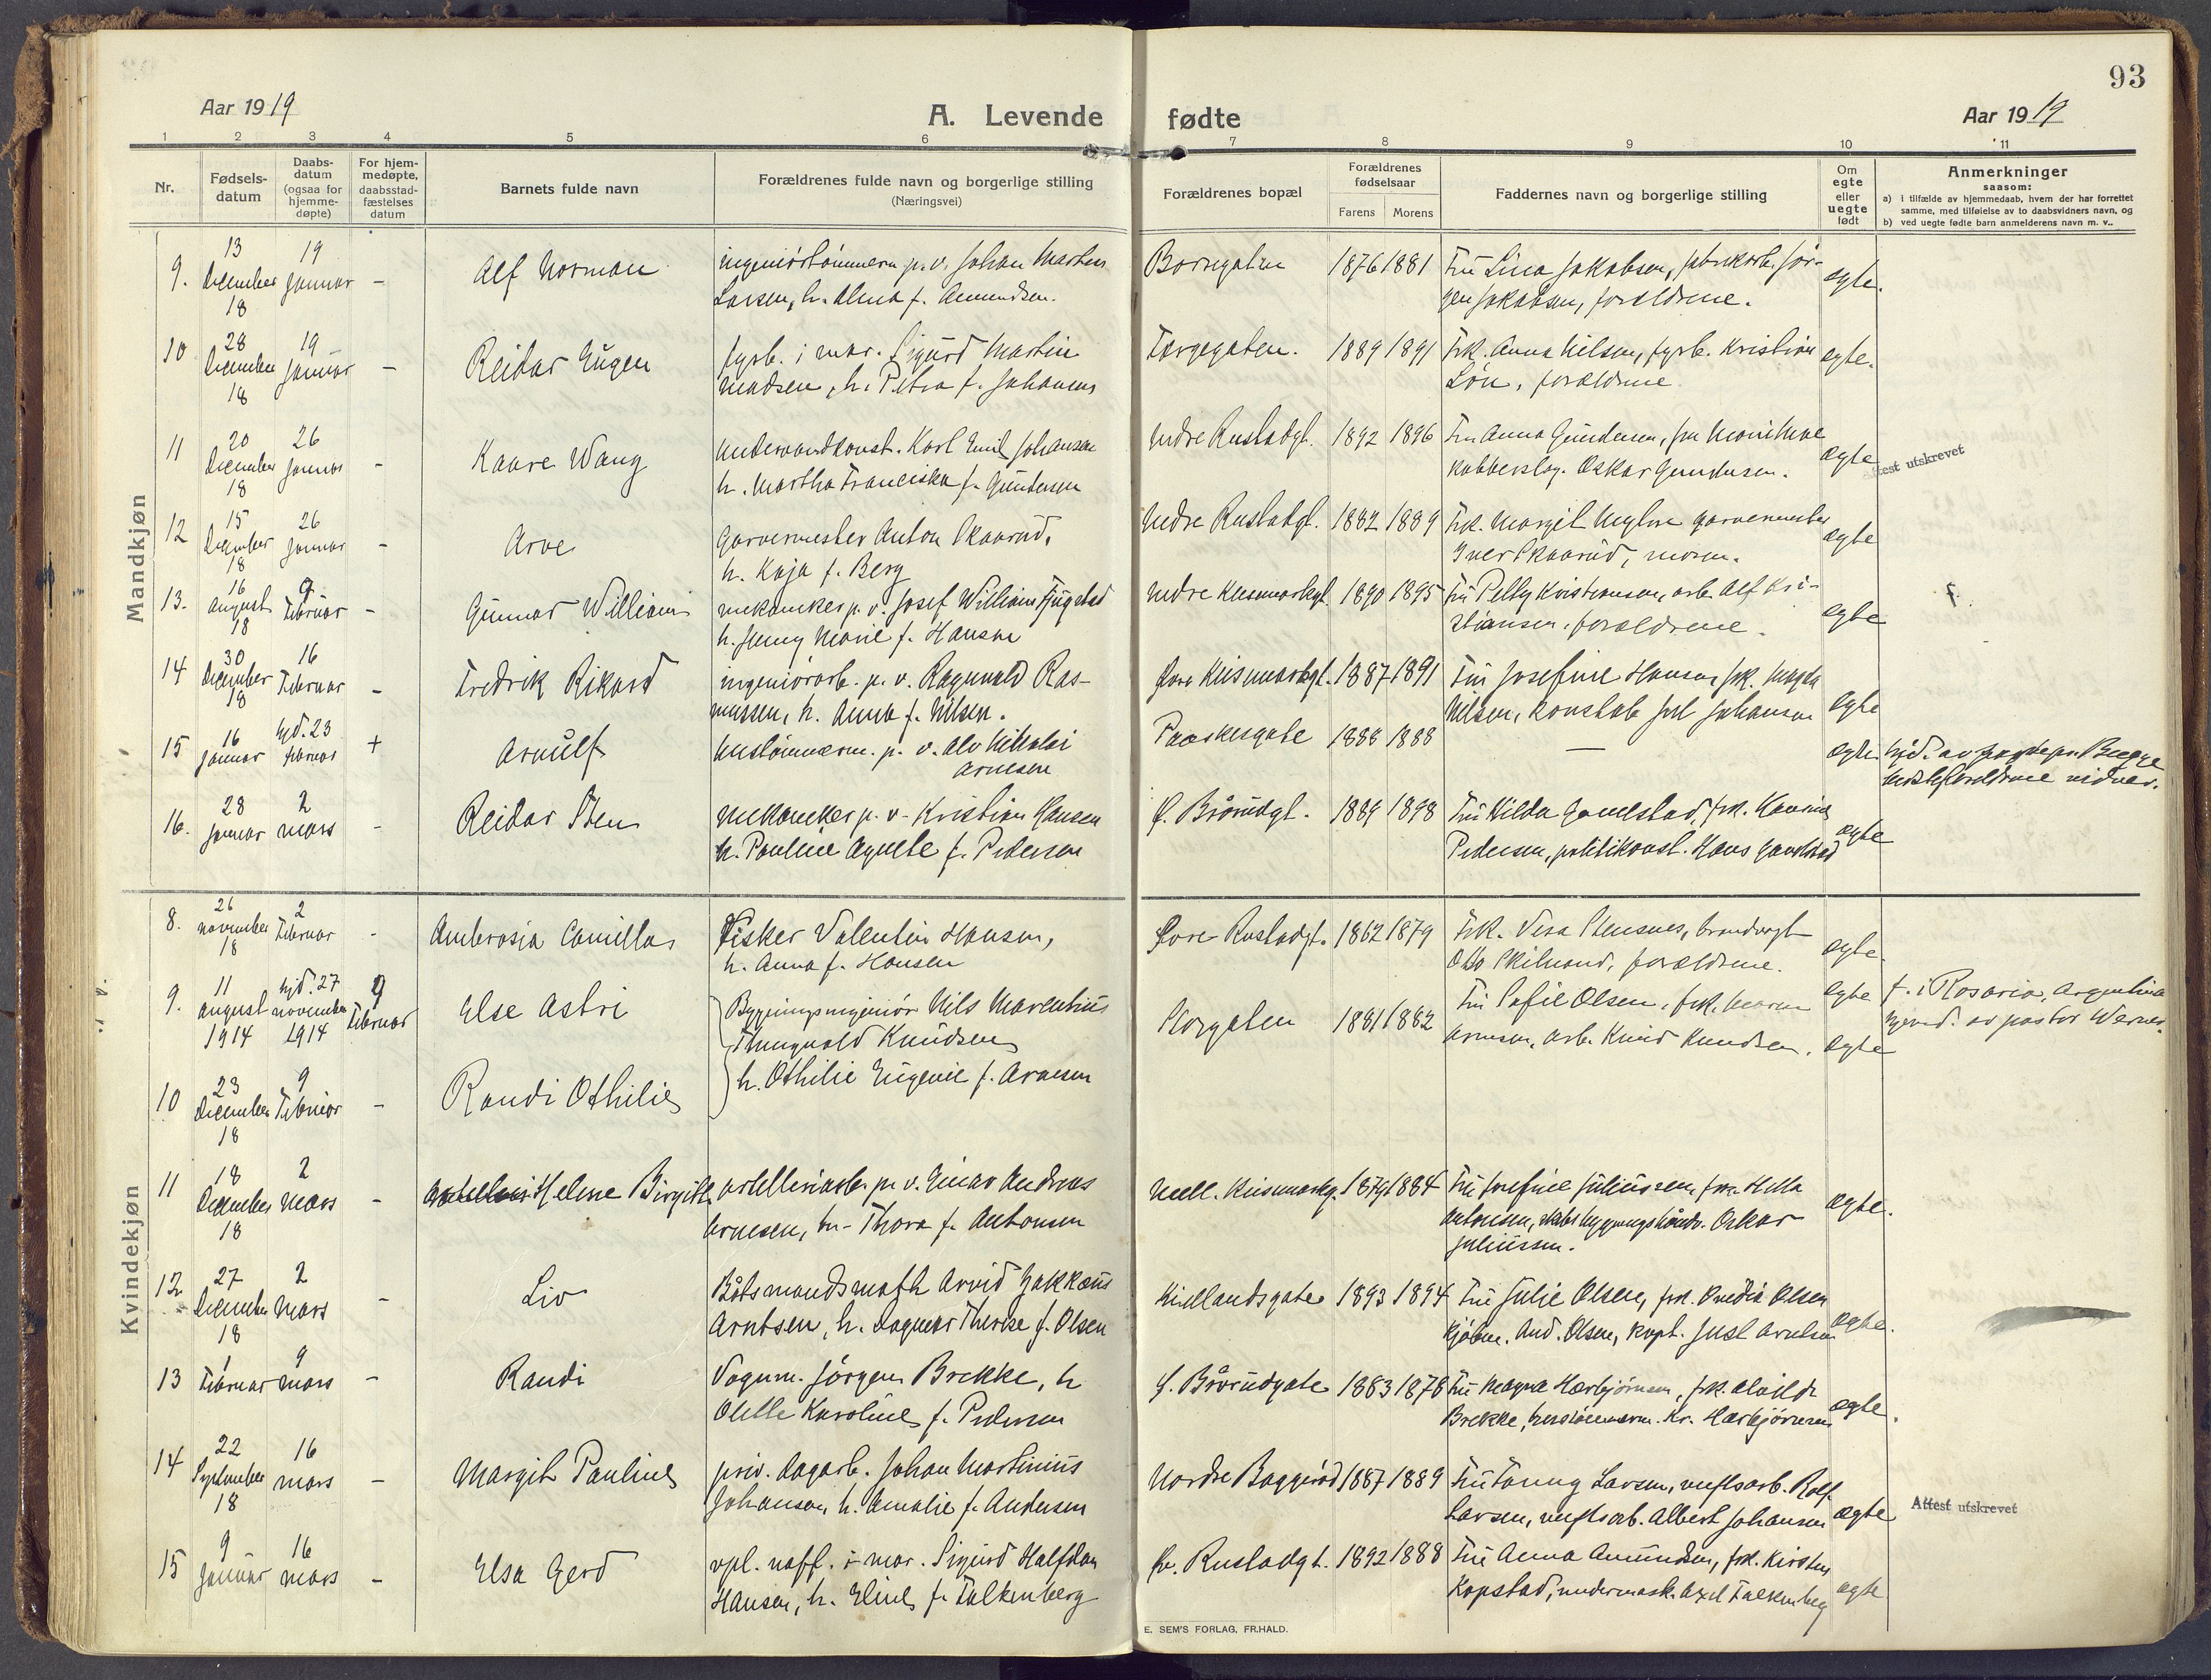 93
Aar 1919
A. Levende fødte
Aar 1919
1 2 3 4 5 6 7 8 9 10 11
Nr.
Fødsels-
datum
Daabs-
datum
(ogsaa for
hjemme-
døpte)
For hjem-
medøpte,
daabsstad-
fæstelses
datum
Barnets fulde navn
Forældrenes fulde navn og borgerlige stilling
(Næringsvei)
Forældrenes bopæl
Forældrenes
fødselsaar
Farens Morens
Faddernes navn og borgerlige stilling
Om
egte
eller
uegte
født
Anmerkninger
saasom:
a) i tilfælde av hjemmedaab, hvem der har forrettet
samme, med tilføielse av to daabsvidners navn, og
b) ved uegte fødte barn anmelderens navn m. v..
Mandkjøn
9. 13 December 18 19 Januar - Alf Norman
ingeniörtömmerm p. v. Johan Martin
Larsen, h. Alma f. Amundsen.
1876 1881
Fru Lina Jakobsen, fabrikarb. Jör-
gen Jakobsen, forældrene.
egte.
10 28 December 18 19 Januar - Reidar Eugen
fyrb. i mar. Sigurd Martin
Madsen, h. Petra f. Johansen
Torvegaten. 1889 1891
Frk. Anna Nilsen, fyrb. Kristian
Lön, forældrene
egte.
11 20 December 18 26 Januar - Kaare Wang
Karl Emil Johansen
h. Martha Franciska f. Gundersen
Indre Rustadgt. 1892 1896
Fru Anna Gundersen, fru
kobberslag. Oskar Gundersen.
egte
Attest utskrevet
12 15 December 18 26 Januar - Arve
Garvermester Anton Skaarud,
h. Kaja f. Berg
Indre Rustadgt. 1882 1889
Frk. Margit garvermester
Iver Skaarud, moren.
egte
13. 16 August 18 9 Februar - Gunnar William
mekaniker p. v. Josef William
h. Jenny Marie f. Hansen
1890 1895
Fru Pelly Kristiansen, arb. Alf Kri-
stiansen, forældrene.
egte
f.
14 30 December 18 16 Februar - Fredrik Rikard
ingeniörarb. p. v. Ragnvald Ras-
mussen, h. Anna f. Nilsen.
1887 1891
Fru Josefine Hansen, frk. Magda
Nilsen, konstab Johansen
egte
15 16 Januar hjd. 23 Februar + Arnulf
p. v. Alv Nikolai
Arnesen
1888 1888
—
egte
hjd. av Bugge
vidner.
16. 28 Januar 2 Mars - Reidar Sten
mekaniker p. v. Kristian Hansen
h. Pauline Agnete f. Pedersen
1889 1898
Fru Hilda Gavelstad, frk.
Pedersen, politikonst. Hans Gavelstad
egte
Kvindekjøn
8. 26 november 18 2 Februar - Ambrosia Camilla
Fisker Valentin Hansen,
h. Anna f. Hansen
1862 1879
Frk. Vera Stensnes, brandvagt
Otto forældrene.
egte.
9. 11 August 1914 hjd. 27 november 1914 9 Februar Else Astri
Bygningsingeniör Nils Marentius
Thingvald Knudsen
h. Othilie Eugenie f. Arnesen
Storgaten 1881 1882
Fru Sofie Olsen, frk.
Arnesen, arb. Knud Knudsen.
egte
f. i Rosario, Argentina
hjemd. av pastor
10 23 December 18 9 Februar - Randi Othilie
egte
11 18 December 18 2 Mars - Helene Birgitte
p. v. Einar Andreas
Arnesen, h. Thora f. Antonsen
1879 1884
Fru Josefine Juliussen, frk. Hilda
Antonsen, Oskar
Juliussen.
egte.
12 27 December 18 2 Mars - Liv
Båtsmandsmath Arvid Zakkæus
Arntsen, h. Dagmar Therese f. Olsen
Kiellandsgate 1893 1894
Fru Julie Olsen, frk. Ovedia Olsen
kjöbm. And. Olsen, kapt. Just Arntsen
egte.
13 1 Februar 9 Mars - Randi
Vognm. Jörgen Brekke, h
Olette Karoline f. Pedersen
1883 1878
Fru Magna Hasbjörnsen, frk. Alvilde
Brekke, Kr. Hasbjörnsen
egte.
14 22 September 18 16 Mars - Margit Pauline
priv. dagarb. Johan Martinius
Johansen, h. Amalie f. Andersen
Nordre Baggeröd 1887 1889
Fru Fanny Larsen, verftsarb. Rolf
Larsen, verftsarb. Albert Johansen
egte
Attest utskrevet
15 9 Januar 16 Mars - Elsa Gerd
i mar. Sigurd Halfdan
Hansen, h. Eline f. Falkenberg
Rustadgt. 1892 1888
Fru Anna Amundsen, frk. Kirsten
Kopstad, undermask. Axel Falkenberg
egte
E. SEM'S FORLAG, FR.HALD.